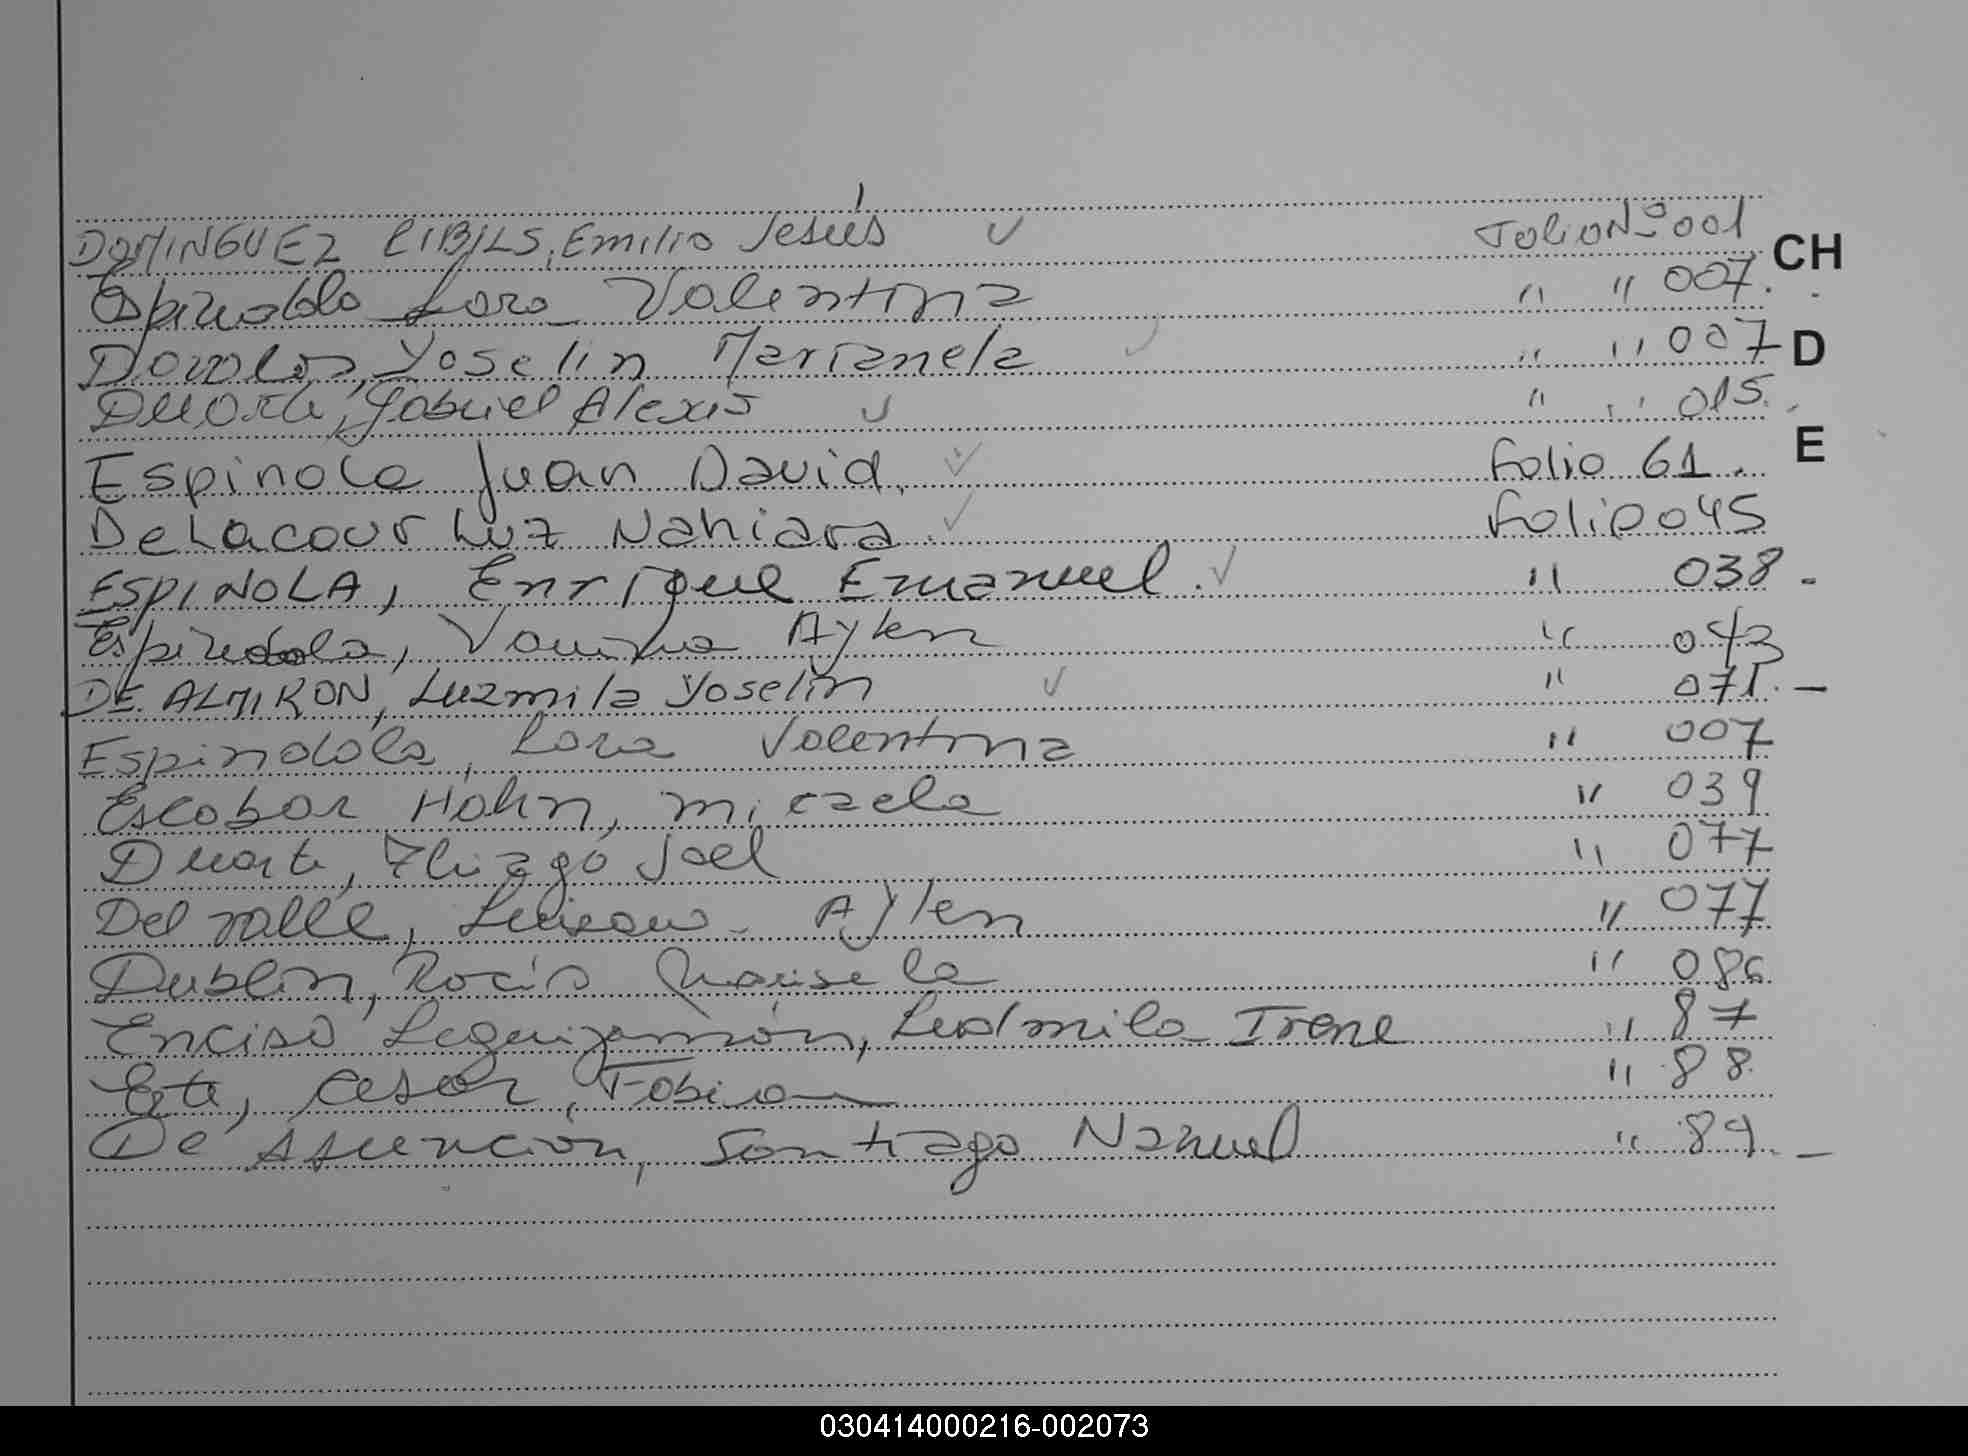 DOMINGUEZ CIBILS, Emilio Jesús ✓ Folio Nº 001
CH
Espindola Lara Valentina " " 007.
Davalos, Yoselin Marianela ✓ " " 007
D
Duarte, Gabriel Alexis ✓ " " 015.
E
Espinola Juan David. ✓ Folio 61.
DeLacour Luz Nahiara. ✓ Folio 045
ESPINOLA, Enrique Emanuel. ✓ " 038 -
Espindola, Vanina Aylen " 043
DE ALMIRON, Luzmila Yoselin ✓ " 071. -
Espindola, Lara Valentina " 007
Escobar Hahn, micaela " 039
Duarte, Thiago Joel " 077
Del valle, Aylen " 077
Dublin, Rocío Marisela " 086
Enciso Leguizamón, Ludmila Irene " 87
Cesar, Fabian " 88
De Asunción, Santiago Nahuel " 89. -
030414000216-002073